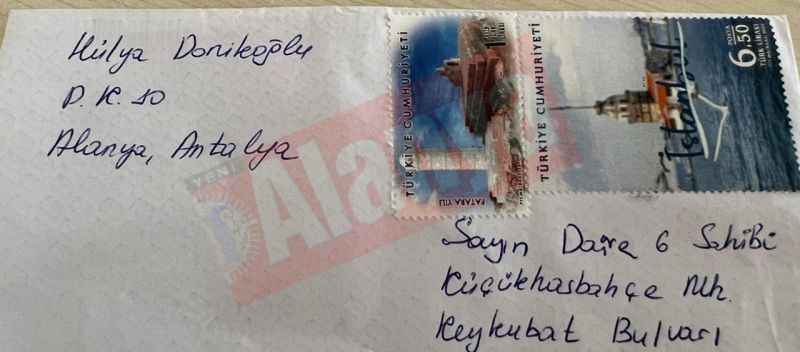 Hülya Donikoğlu
P.K. 10
Alanya, Antalya
TÜRKİYE CUMHURİYETİ
PATARA YILI
TÜRKİYE CUMHURİYETİ
İstanbul
6,50
TÜRK LİRASI
YENİ
Sayın Daire 6 Sahibi
Küçükhasbahçe Mh.
Keykubat Bulvarı